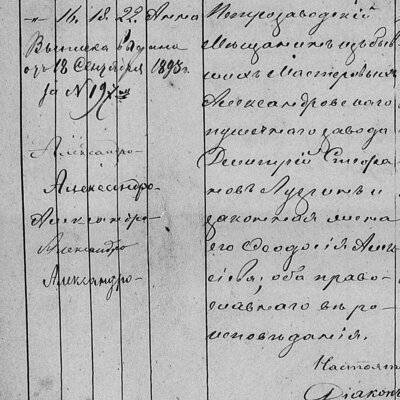 " 16. 18. 22. Анна
Выписка выдана
отъ 18 Сентября 1893 г.
за № 197
Александро-
Александро-
Александро-
Александро
Александро-
Петрозаводскій
мѣщанинъ изъ быв
шихъ мастеровыхъ
Александровскаго
пушечнаго завода
Димитрій Стефа
новъ и
законная жена
его Ѳеодосія
оба право
славнаго вѣ ро
исповѣданія.
Настоят
Діаконъ